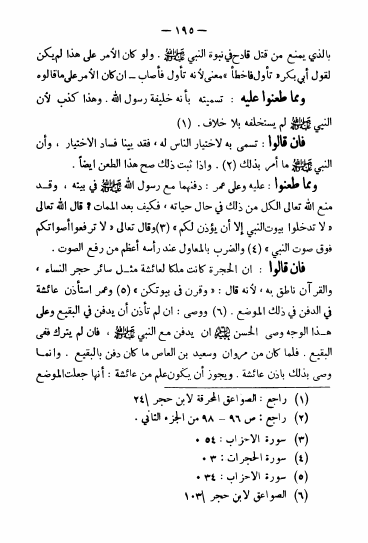 — ١٩٥ —
بالذي يمنع من قتل قادح في نبوة النبي ﷺ . ولو كان الأمر على هذا لم يكن
لقول أبي بكر « تأول فأخطأ » معنى لأنه تأول فأصاب – ان كان الأمر على ما قالوه
ومما طعنوا عليه : تسميته بأنه خليفة رسول الله . وهذا كذب لأن
النبي ﷺ لم يستخلفه بلا خلاف . (١)
فان قالوا : تسمى به لاختيار الناس له ، فقد بينا فساد الاختيار ، وأن
النبي ﷺ ما أمر بذلك (٢) . واذا ثبت ذلك صح هذا الطعن ايضاً .
ومما طعنوا : عليه وعلى عمر : دفنهما مع رسول الله ﷺ في بيته ، وقد
منع الله تعالى الكل من ذلك في حال حياته ، فكيف بعد الممات ؟ قال الله تعالى
« لا تدخلوا بيوت النبي إلا أن يؤذن لكم » (٣) وقال تعالى « لا ترفعوا أصواتكم
فوق صوت النبي » (٤) والضرب بالمعاول عند رأسه أعظم من رفع الصوت .
فان قالوا : ان الحجرة كانت ملكا لعائشة مثل سائر حجر النساء ،
والقرآن ناطق به ، لأنه قال : « وقرن في بيوتكن » (٥) وعمر استأذن عائشة
في الدفن في ذلك الموضع . (٦) ووصى : ان لم تأذن أن يدفن في البقيع وعلى
هذا الوجه وصى الحسن ان يدفن مع النبي ﷺ ، فان لم يترك ففي
البقيع . فلما كان من مروان وسعيد بن العاص ما كان دفن بالبقيع . وانما
وصى بذلك باذن عائشة . ويجوز أن يكون علم من عائشة : أنها جعلت الموضع
(١) راجع : الصواعق المحرقة لابن حجر / ٢٤
(٢) راجع : ص ٩٦ – ٩٨ من الجزء الثاني .
(٣) سورة الاحزاب : ٥٤
(٤) سورة الحجرات : ٣
(٥) سورة الاحزاب : ٣٤
(٦) الصواعق لابن حجر / ١٠٣